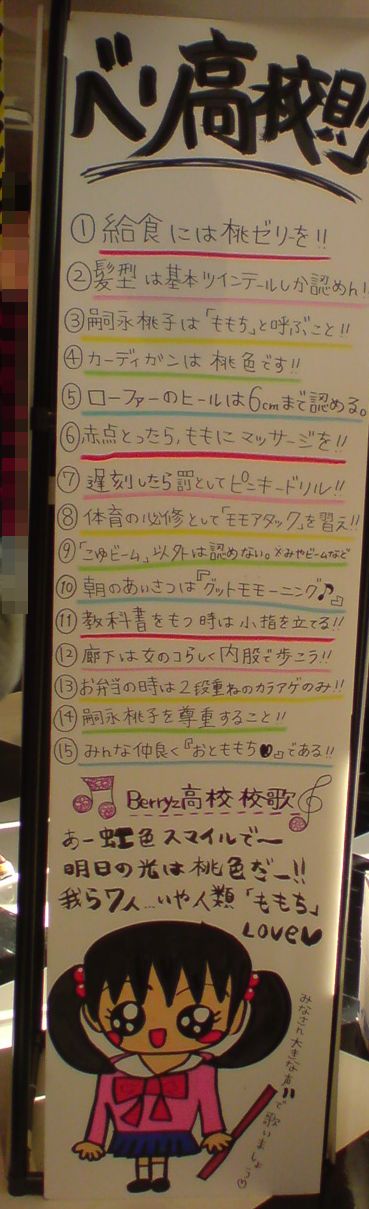 ベリ高校則
①給食には桃ゼリーを!!
②髪型は基本ツインテールしか認めん!!
③嗣永桃子は「ももち」と呼ぶこと!!
④カーディガンは桃色です!!
⑤ローファーのヒールは6cmまで認める。
⑥赤点とったら,ももにマッサージを!!
⑦遅刻したら罰としてピンキードリル!!
⑧体育の必修として「モモアタック」を習え!!
⑨「こゆビーム」以外は認めない。×みやビームなど
⑩朝のあいさつは『グットモモーニング♪』
⑪教科書をもつ時は小指を立てる!!
⑫廊下は女のコらしく内股で歩こう!!
⑬お弁当の時は2段重ねのカラアゲのみ!!
⑭嗣永桃子を尊重すること!!
⑮みんな仲良く『おとももち♥』である!!
Berryz高校 校歌
あー虹色スマイルで〜
明日の光は桃色だー!!
我ら7人…いや人類「ももち」
LOVE♥
みなさん大きな声で歌いましょう